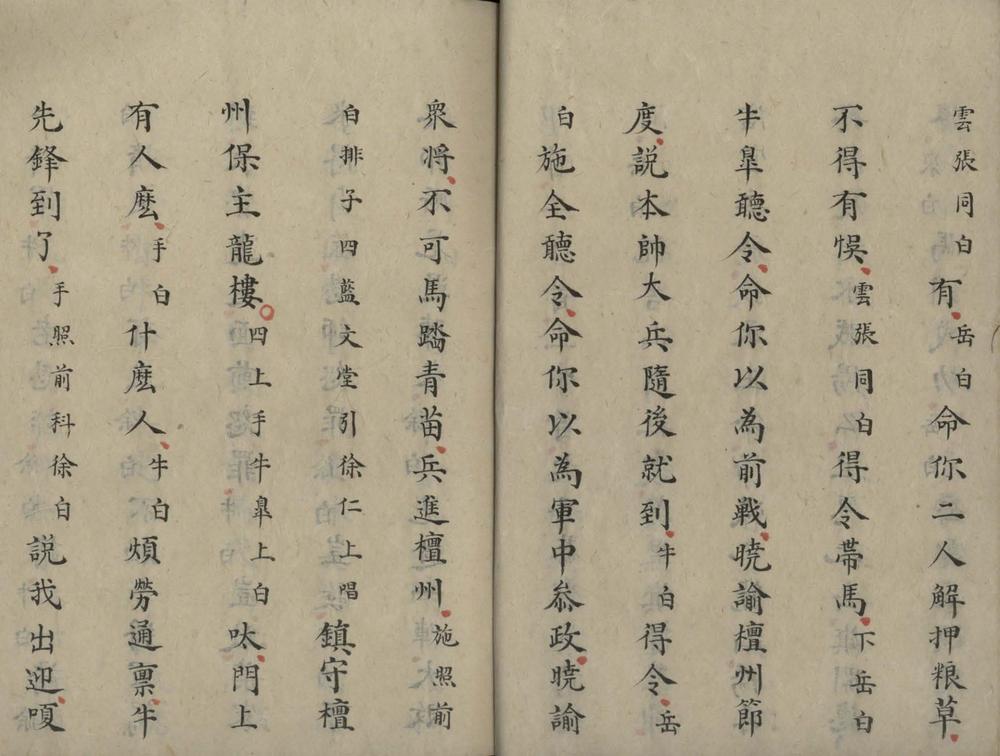 雲張同白有岳白命你二人解押粮草
不得有悞雲張同白得令帶馬下岳白
牛臯聽令命你以為前戰曉諭檀州節
度說本帥大兵隨後就到牛白得令岳
白施全聽令命你以為軍中叅政曉諭
衆將不可馬踏青苗兵進檀州施照前
白排子四藍文堂引徐仁上唱鎮守檀
州保主龍樓四上手牛臯上白呔門上
有人麽手白什麽人牛白煩勞通禀牛
先鋒到了手照前科徐白說我出迎嗄